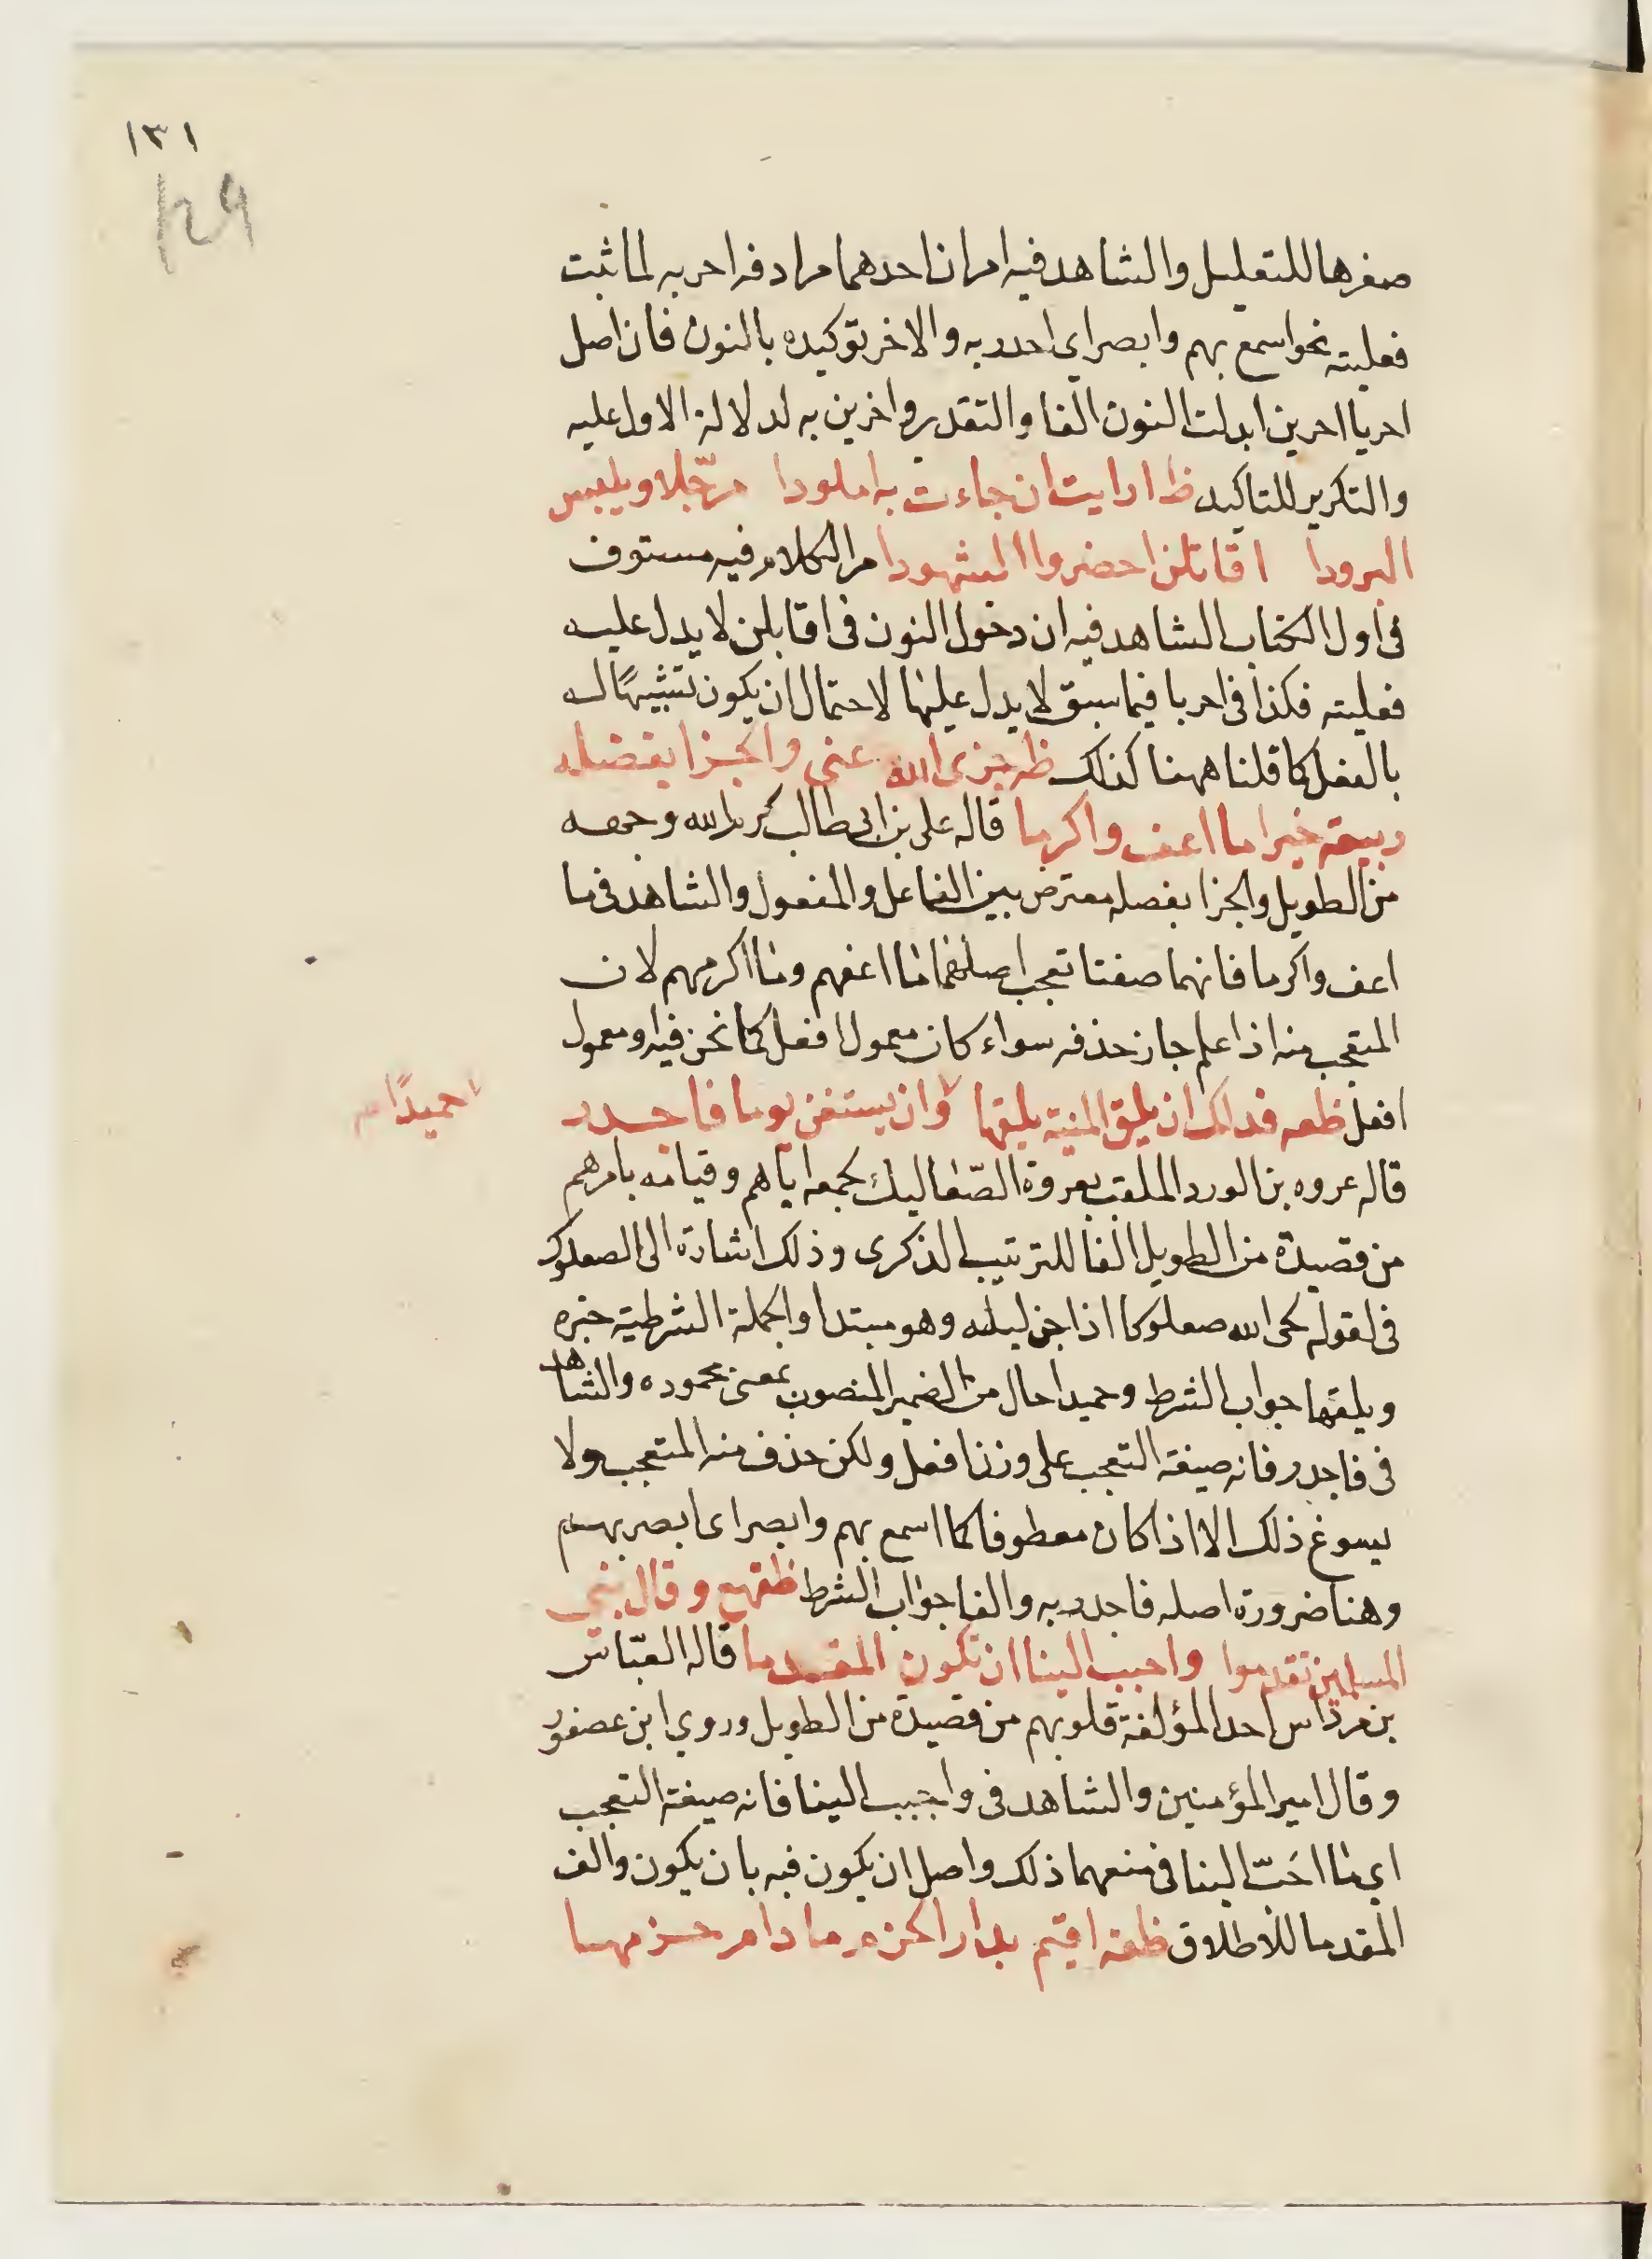 ١٣١
صغرها للتقليل والشاهد فيه امران احدهما مرادفه احر به لما ثبت
فعليته نحو اسمع بهم وابصر اى احدد به والاخر توكيده بالنون فان اصل
احريا احرين ابدلت النون الفا والتقدير واحرين به لدلالة الاول عليه
والتكرير للتاكيد ظ ارايت ان جاءت به املودا مرجّلا ويلبس
البرودا اقائلن احضروا الشهودا مر الكلام فيه مستوف
فى اول الكتاب الشاهد فيه ان دخول النون فى اقايلن لا يدل عليه
فعليته فكذا فى احريا فيما سبق لا يدل عليها لاحتمال ان يكون تشبيهًا له
بالفعل كما قلنا ههنا كذلك ظه جزى الله عنى والجزا بفضله
ربيعة خيرا ما اعف واكرما قاله على بن ابى طالب كرم الله وجهه
من الطويل والجزا بفضله معترض بين الفاعل والمفعول والشاهد فى ما
اعف واكرما فانهما صفتا تعجب اصلهما ما اعفهم وما اكرمهم لان
المتعجب منه اذا علم جاز حذفه سواء كان معمول افعل كما نحن فيه او معمول
افعل ظعه فذلك ان يلق المنية يلقها وان يستغن يوما فاجدر
حميدًا
قاله عروه بن الورد الملقب بعروة الصّعاليك لجمعه اياهم وقيامه بامرهم
من قصيدة من الطويل الفا للترتيب الذكرى وذلك اشارة الى الصعلوك
فى لقوله لحى الله صعلوكا اذا جن ليله وهو مبتدا والجملة الشرطية خبره
ويلقها جواب الشرط وحميدا حال من الضمير المنصوب بمعنى محموده والشاهد
فى فاجدر فانه صيغة التعجب على وزن افعل ولكن حذف منه المتعجب ولا
يسوغ ذلك الا اذا كان معطوفا كما اسمع بهم وابصر اى ابصر بهم
وهنا ضرورة اصله فاجدر به والفا جواب الشرط ظقهع وقال نبى
المسلمين تقدموا واحبب الينا ان تكون المقدما قاله العبّاس
بن مرداس احد المؤلفة قلوبهم من قصيدة من الطويل وروي ابن عصفور
وقال امير المؤمنين والشاهد فى واحبب الينا فانه صيغة التعجب
اي ما احَبّ الينا فى منعهما ذلك واصل ان يكون فيه بان يكون والف
المقدما للاطلاق ظقه اقيم بدار الحزم ما دام حزمها